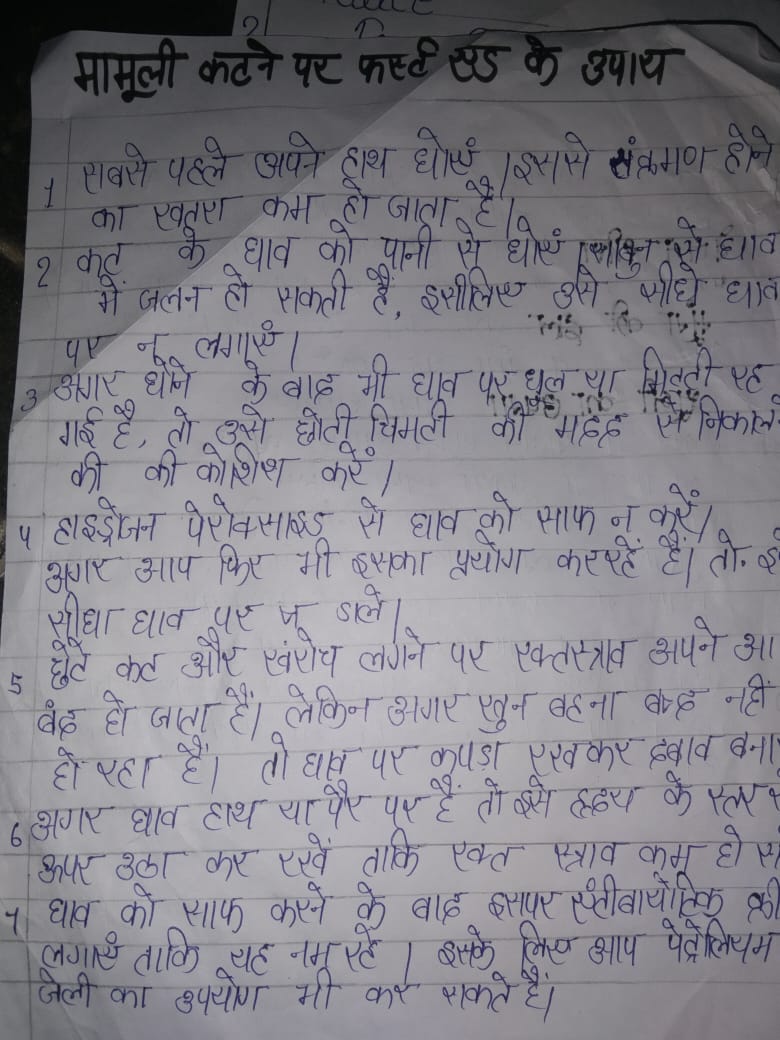 मामूली कटने पर फर्स्ट एड के उपाय
1 सबसे पहले अपने हाथ धोएं । इससे संक्रमण होने
का खतरा कम हो जाता है।
2 कट के घाव को पानी से धोएं । साबुन से घाव
में जलन हो सकती है, इसीलिए उसे सीधे घाव
पर न लगाएं ।
3 अगर धोने के बाद भी घाव पर धूल या मिट्टी रह
गई है, तो उसे छोटी चिमटी की मदद से निकालने
की की कोशिश करें ।
4 हाइड्रोजन पेरोक्साइड से घाव को साफ न करें।
अगर आप फिर भी इसका प्रयोग कर रहें हैं। तो.
सीधा घाव पर न डाले।
5 छुटे कट और खंरोच लगने पर रक्तस्त्राव अपने आ
बंद हो जाता हैं। लेकिन अगर खुन बहना बन्द नहीं
हो रहा हैं। तो घाव पर कपड़ा रखकर दबाव बना
6 अगर घाव हाथ या पैर पर हैं तो इसे हृदय के स्तर
ऊपर उठा कर रखें ताकि रक्त स्त्राव कम हो
7 घाव को साफ करने के बाद इसपर एंटीबायोटिक क्री
लगाएं ताकि यह नम रहे । इसके लिए आप पेट्रोलियम
जेली का उपयोग भी कर सकते हैं।